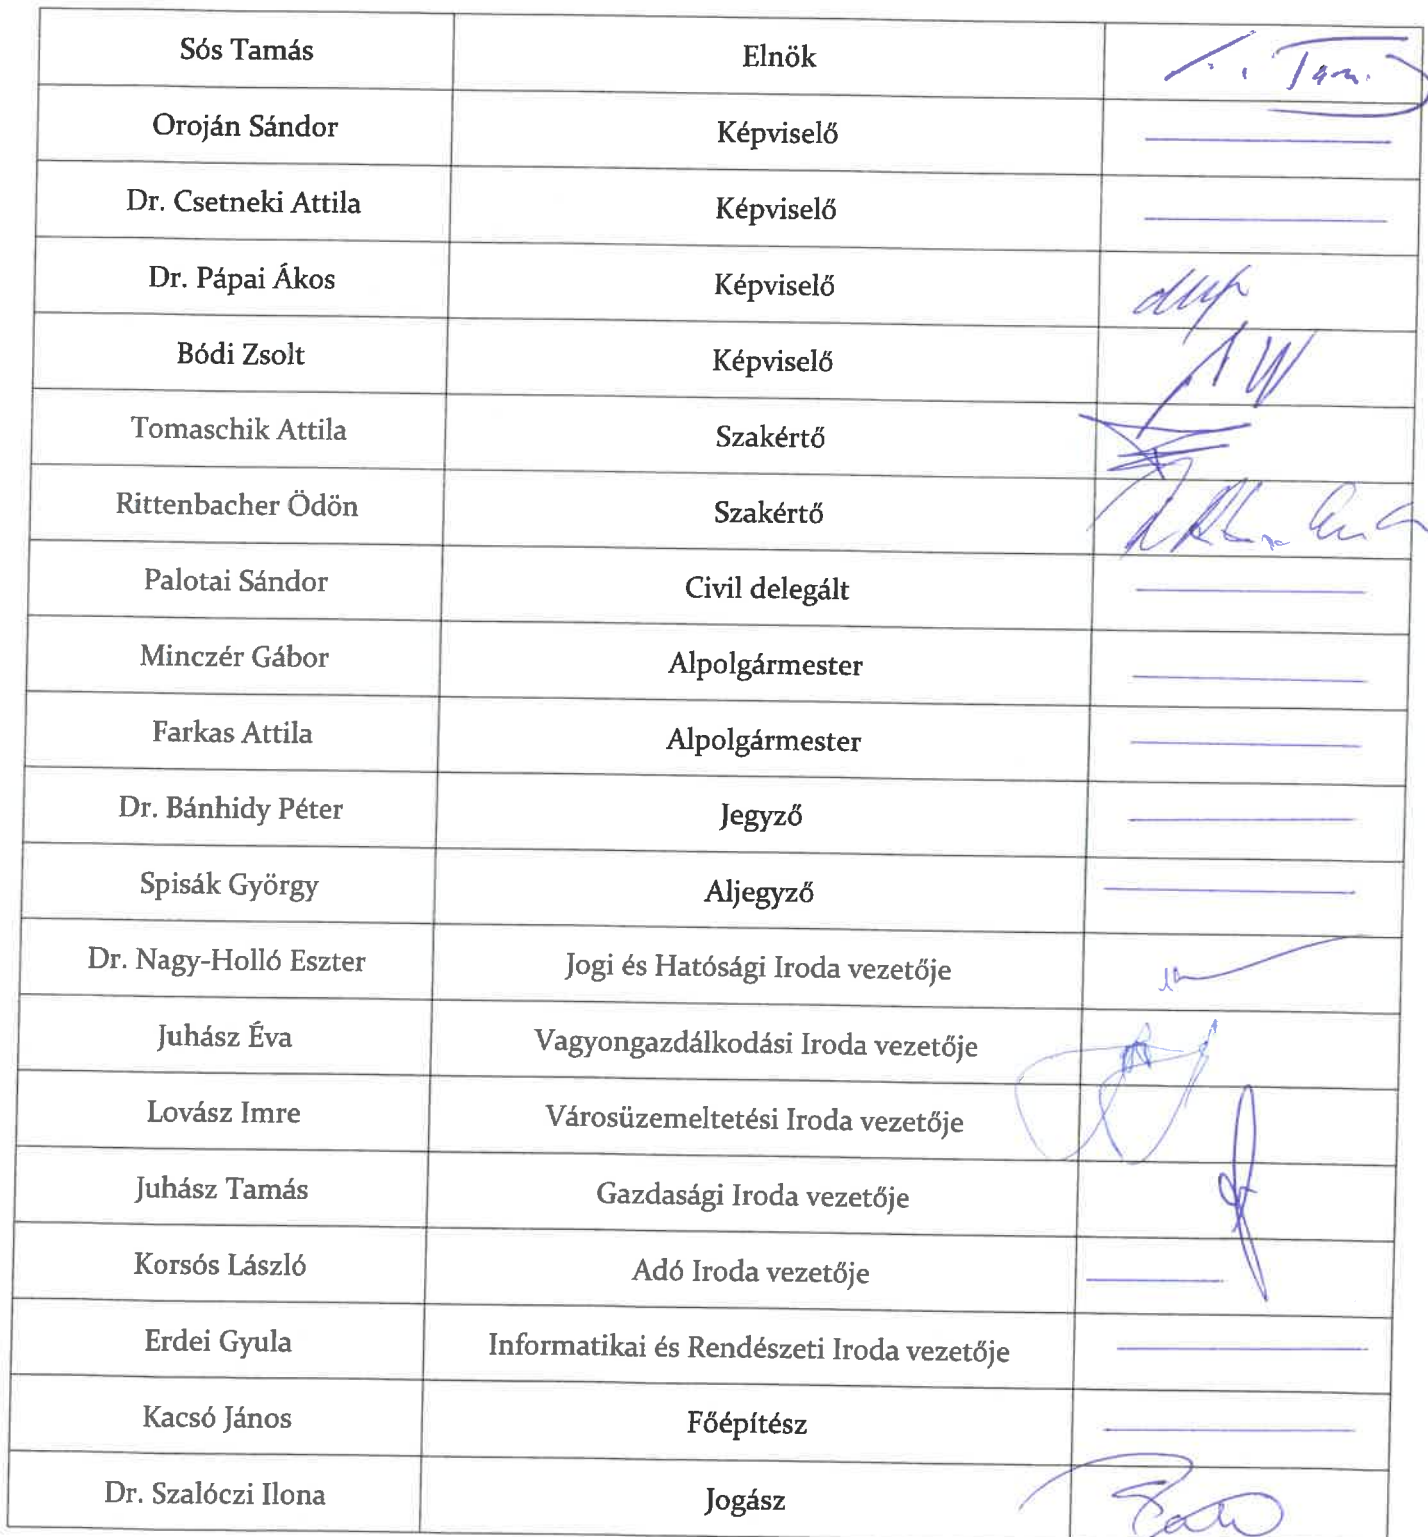 Sós Tamás Elnök
Oroján Sándor Képviselő
Dr. Csetneki Attila Képviselő
Dr. Pápai Ákos Képviselő
Bódi Zsolt Képviselő
Tomaschik Attila Szakértő
Rittenbacher Ödön Szakértő
Palotai Sándor Civil delegált
Minczér Gábor Alpolgármester
Farkas Attila Alpolgármester
Dr. Bánhidy Péter Jegyző
Spisák György Aljegyző
Dr. Nagy-Holló Eszter Jogi és Hatósági Iroda vezetője
Juhász Éva Vagyongazdálkodási Iroda vezetője
Lovász Imre Városüzemeltetési Iroda vezetője
Juhász Tamás Gazdasági Iroda vezetője
Korsós László Adó Iroda vezetője
Erdei Gyula Informatikai és Rendészeti Iroda vezetője
Kacsó János Főépítész
Dr. Szalóczi Ilona Jogász